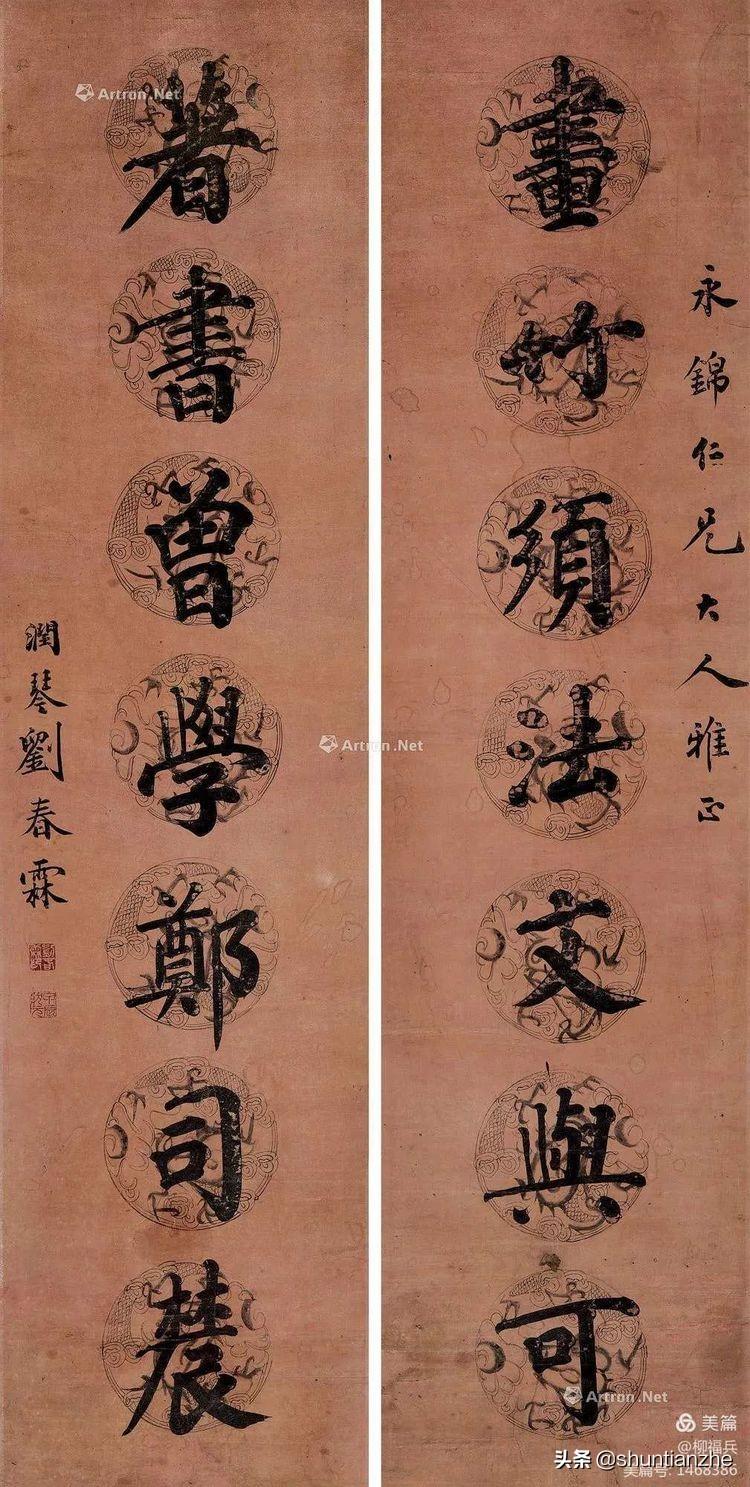 永錦仁兄大人雅正
畫竹須法文與可
著書曾學鄭司農
潤琴劉春霖
Artron.Net
Artron.Net
Artron.Net
美篇
@柳福兵
美篇号: 1468386
头条 @shuntianzhe